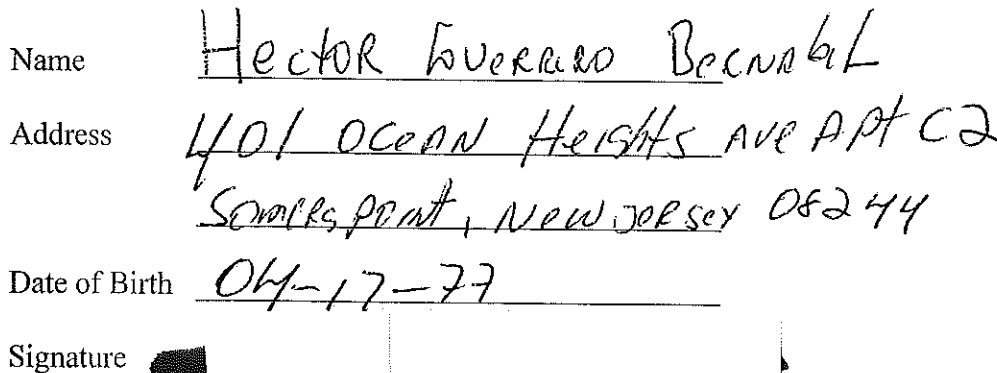 Name Hector Guerrero Bernabel
Address 401 Ocean Heights Ave Apt C2
Somers point, New Jersey 08244
Date of Birth 04-17-77
Signature